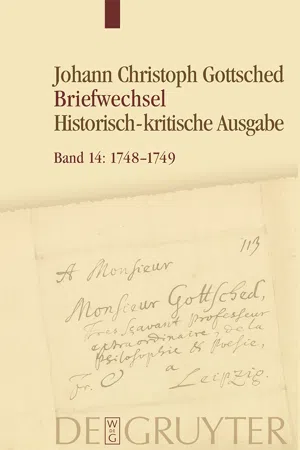 Johann Christoph Gottsched
Briefwechsel
Historisch-kritische Ausgabe
Band 14: 1748–1749
113
A Monsieur
Monsieur Gottsched,
Tres savant Professeur
extraordinaire, de la
philosophie & Poesie,
Fr. à
Leipzig.
W
DE
G
DE GRUYTER